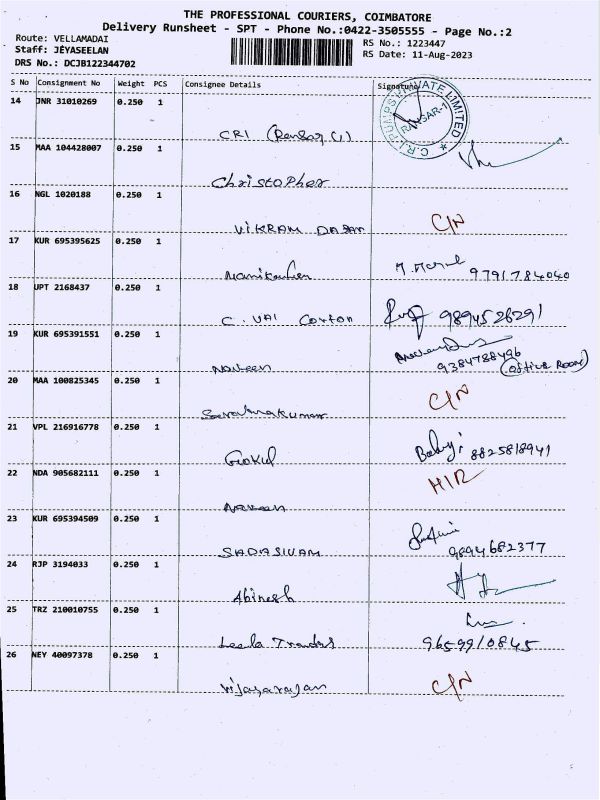 THE PROFESSIONAL COURIERS, COIMBATORE
Delivery Runsheet - SPT - Phone No.:0422-3505555 - Page No.:2
Route: VELLAMADAI
RS No.: 1223447
Staff: JEYASEELAN
RS Date: 11-Aug-2023
DRS No.: DCJB122344702
S No Consignment No Weight PCS Consignee Details Signature
14 JNR 31010269 0.250 1
C.R.I. PUMPS PRIVATE LIMITED
CRI
15 MAA 104428007 0.250 1
Christopher
16 NGL 1020188 0.250 1
VIKRAM C/N
17 KUR 695395625 0.250 1
9791784040
18 UPT 2168437 0.250 1
C. VAI Cotton 9894526291
19 KUR 695391551 0.250 1
Naveen 9384788496 (Office Room)
20 MAA 100825345 0.250 1
Saravanakumar C/N
21 VPL 216916778 0.250 1
Gokul 8825818941
22 NDA 905682111 0.250 1
Naveen
23 KUR 695394509 0.250 1
SADASIVAM 9894682377
24 RJP 3194033 0.250 1
Abinesh
25 TRZ 210010755 0.250 1
Leela Traders 9659910845
26 NEY 40097378 0.250 1
Vijayarajan C/N